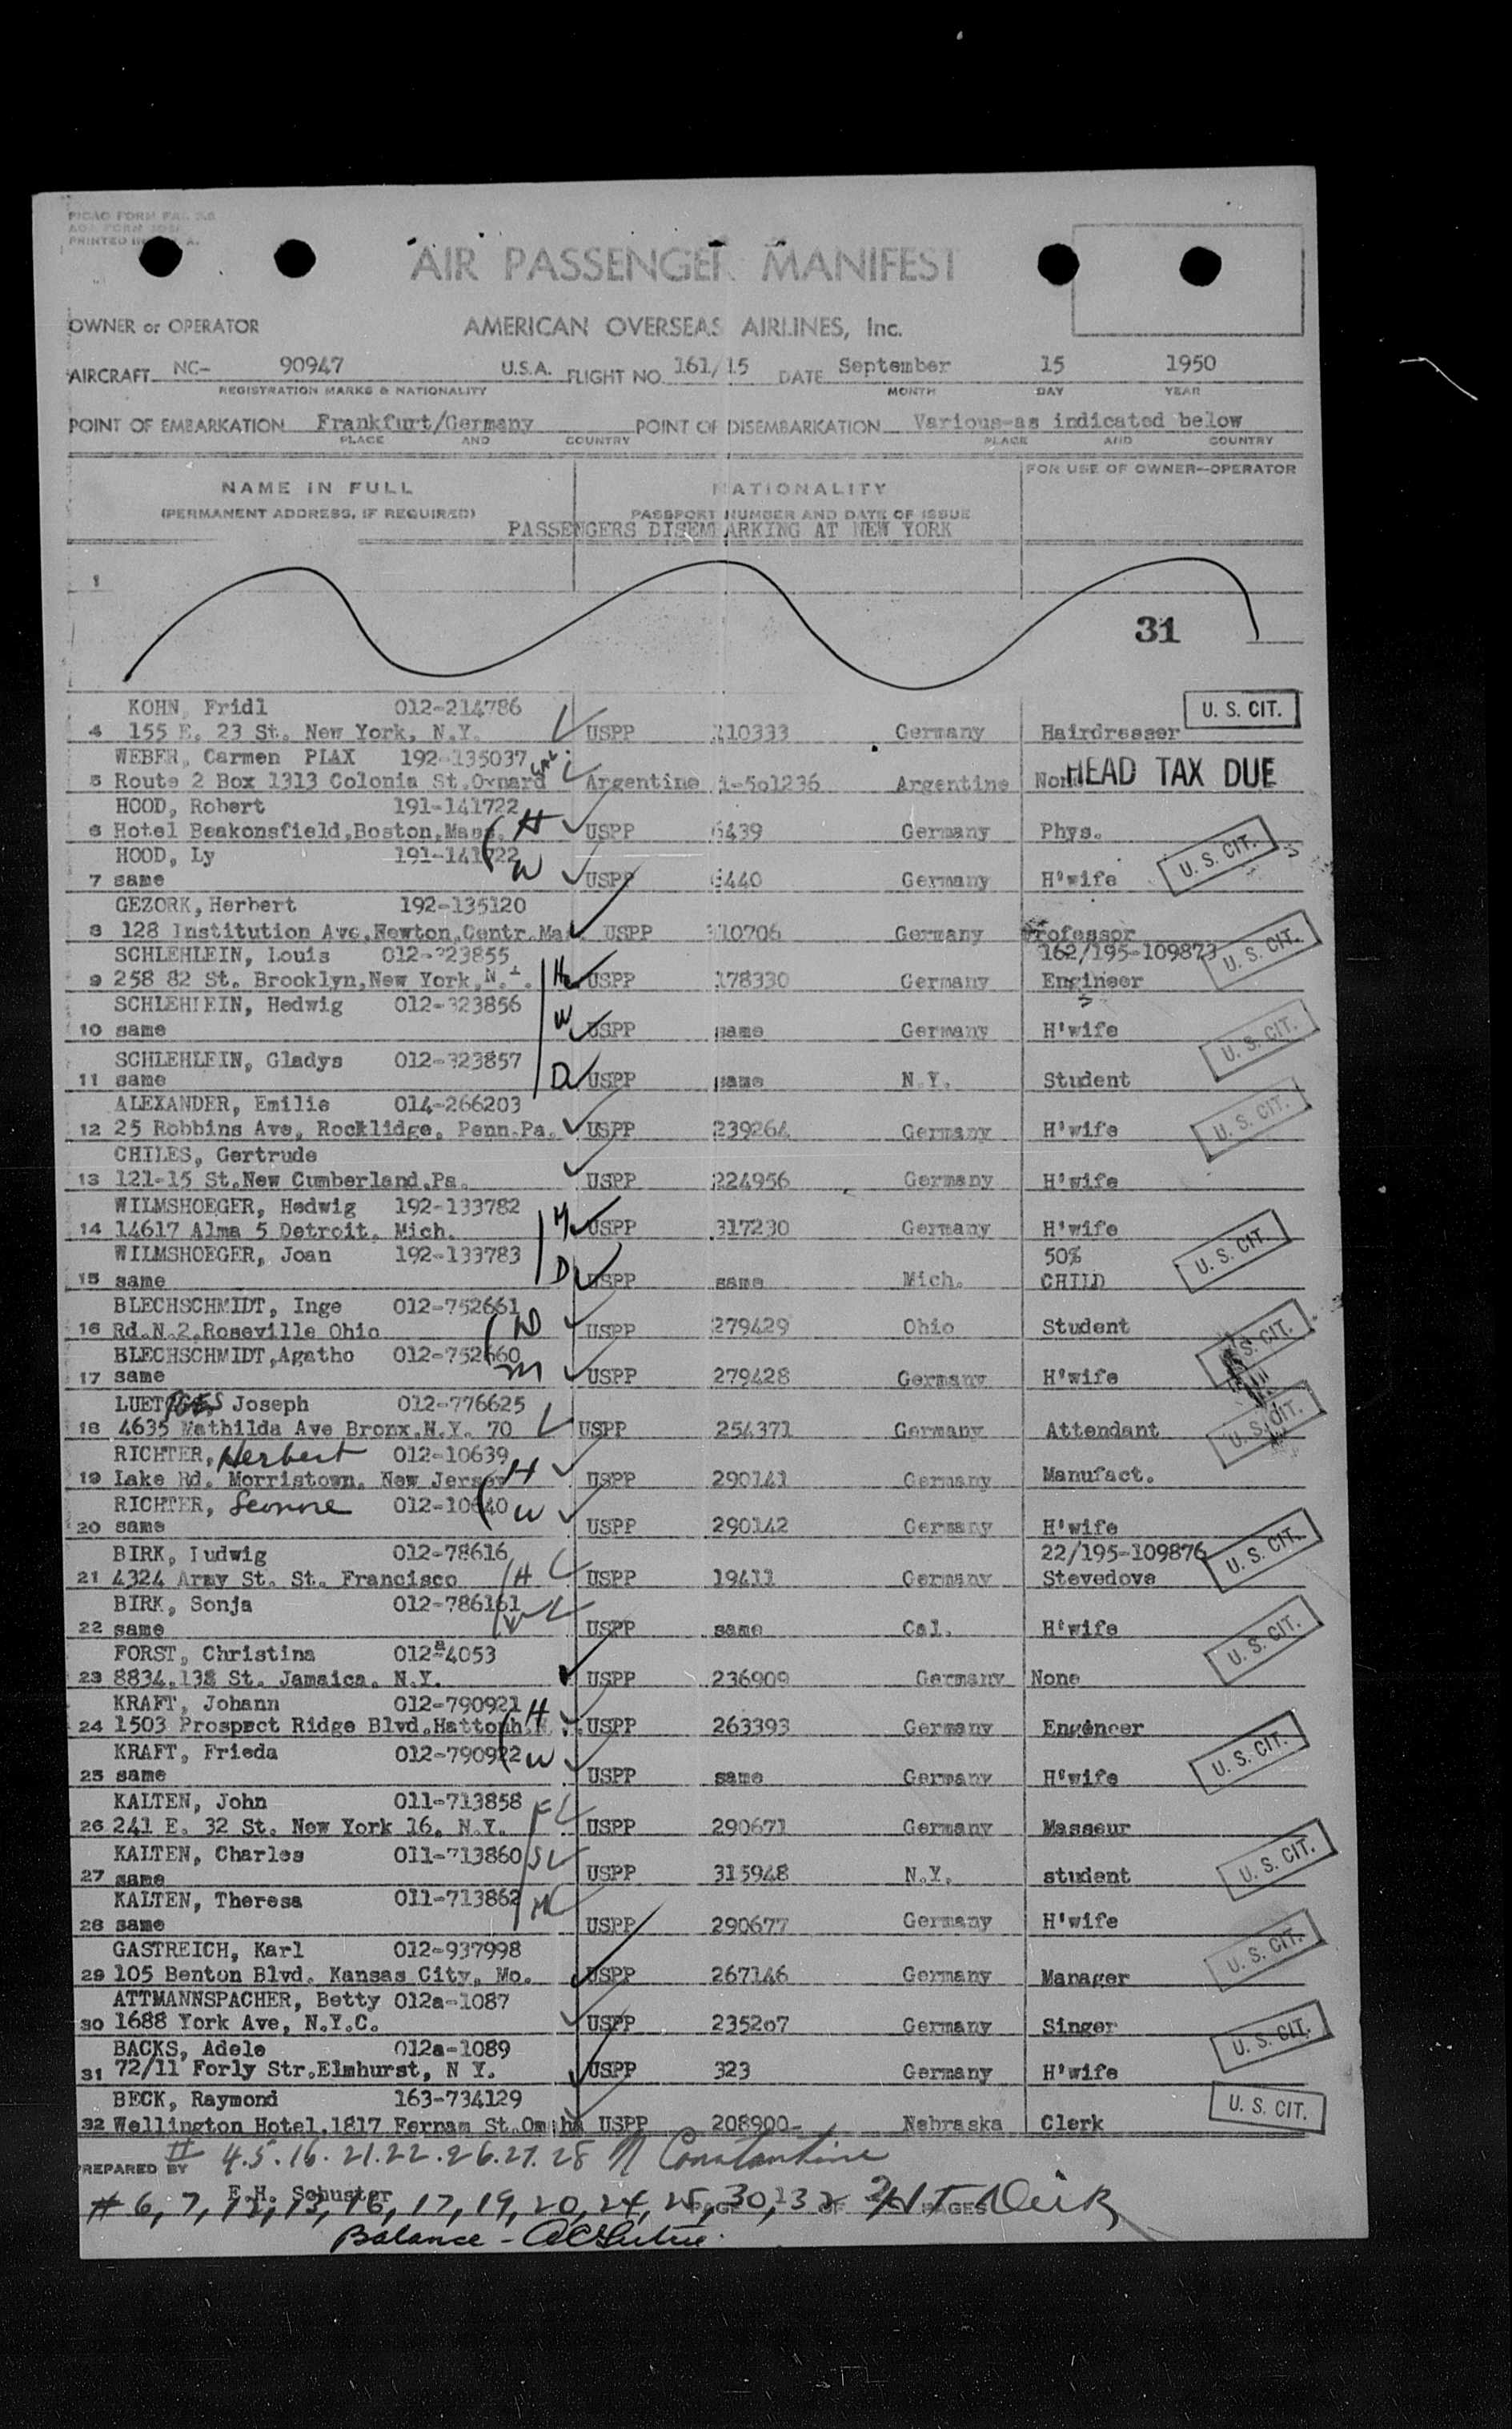 PRINTED IN
AIR PASSENGER MANIFEST
OWNER or OPERATOR AMERICAN OVERSEAS AIRLINES, Inc.
AIRCRAFT NC- 90947 U.S.A. FLIGHT NO. 161/15 DATE September 15 1950
REGISTRATION MARKS & NATIONALITY MONTH DAY YEAR
POINT OF EMBARKATION Frankfurt/Germany POINT OF DISEMBARKATION Various-as indicated below
PLACE AND COUNTRY PLACE AND COUNTRY
FOR USE OF OWNER—OPERATOR
NAME IN FULL NATIONALITY
(PERMANENT ADDRESS, IF REQUIRED) PASSPORT NUMBER AND DATE OF ISSUE
PASSENGERS DISEMBARKING AT NEW YORK
1
31
KOHN, Fridl 012-214786 U. S. CIT.
4 155 E. 23 St. New York, N.Y. USPP 110333 Germany Hairdresser
WEBER, Carmen PIAX 192-135037
5 Route 2 Box 1313 Colonia St.Oxnard Argentine 1-5o1236 Argentine HEAD TAX DUE
HOOD, Robert 191-141722
6 Hotel Beakonsfield,Boston,Mass. H USPP 6439 Germany Phys.
HOOD, Ly 191-141722 W U. S. CIT.
7 same USPP 6440 Germany H'wife
GEZORK, Herbert 192-135120
8 128 Institution Ave,Newton,Centr.Ma USPP 110706 Germany Professor
SCHLEHLEIN, Louis 012-323855 162/195-109873 U. S. CIT.
9 258 82 St. Brooklyn,New York, H USPP 178330 Germany Engineer
SCHLEHLEIN, Hedwig 012-323856 W
10 same USPP same Germany H'wife U. S. CIT.
SCHLEHLEIN, Gladys 012-323857
11 same D USPP same N.Y. Student
ALEXANDER, Emilie 014-266203 U. S. CIT.
12 25 Robbins Ave, Rocklidge, Penn.Pa. USPP 239264 Germany H'wife
CHILES, Gertrude
13 121-15 St.New Cumberland,Pa. USPP 224956 Germany H'wife
WILMSHOEGER, Hedwig 192-133782
14 14617 Alma 5 Detroit, Mich. USPP 317230 Germany H'wife
WILMSHOEGER, Joan 192-133783 50% U. S. CIT.
15 same D USPP same Mich. CHILD
BLECHSCHMIDT, Inge 012-752661
16 Rd.N.2,Roseville Ohio D USPP 279429 Ohio Student
BLECHSCHMIDT,Agatho 012-752660 S. CIT.
17 same M USPP 279428 Germany H'wife
LUETGES Joseph 012-776625
18 4635 Mathilda Ave Bronx,N.Y. 70 USPP 254371 Germany Attendant U. S. CIT.
RICHTER, Herbert 012-10639
19 Lake Rd. Morristown, New Jersey H USPP 290141 Germany Manufact.
RICHTER, 012-10640 W
20 same USPP 290142 Germany H'wife
BIRK, Ludwig 012-78616 22/195-109876 U. S. CIT.
21 4324 Army St. St. Francisco H USPP 19411 Germany Stevedove
BIRK, Sonja 012-786161
22 same W USPP same Cal. H'wife
FORST, Christina 012a-4053 U. S. CIT.
23 8834,138 St. Jamaica, N.Y. USPP 236909 Germany None
KRAFT, Johann 012-790921 H
24 1503 Prospect Ridge Blvd,Hattonh,N. USPP 263393 Germany Engeneer
KRAFT, Frieda 012-790922 W U. S. CIT.
25 same USPP same Germany H'wife
KALTEN, John 011-713858 F
26 241 E. 32 St. New York 16, N.Y. USPP 290671 Germany Masseur
KALTEN, Charles 011-713860 S U. S. CIT.
27 same USPP 315948 N.Y. student
KALTEN, Theresa 011-713862 M
28 same USPP 290677 Germany H'wife
GASTREICH, Karl 012-937998 U. S. CIT.
29 105 Benton Blvd. Kansas City, Mo. USPP 267146 Germany Manager
ATTMANNSPACHER, Betty 012a-1087
30 1688 York Ave, N.Y.C. USPP 2352o7 Germany Singer U. S. CIT.
BACKS, Adele 012a-1089
31 72/11 Forly Str.Elmhurst, N Y. USPP 323 Germany H'wife
BECK, Raymond 163-734129 U. S. CIT.
32 Wellington Hotel,1817 Fernam St.Omaha USPP 208900- Nebraska Clerk
4.5.16.21.22.26.27.28 N Constantine
PREPARED BY
E.H. Schuster
# 6, 7, 12, 13, 16, 17, 19, 20, 24, 25, 30, 32 PAGE OF PAGES
Balance -